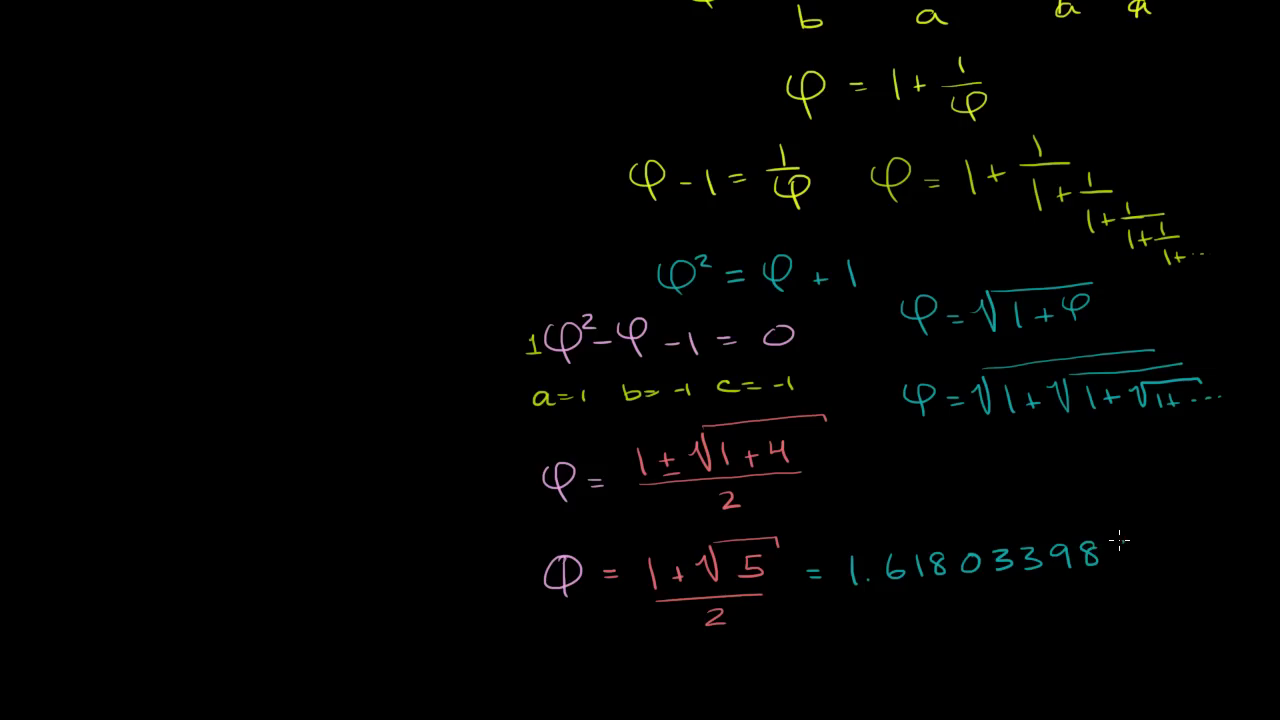 b a b a
φ = 1 + 1/φ
φ - 1 = 1/φ
φ = 1 + 1/(1 + 1/(1 + 1/(1 + 1/(1 + ...
φ² = φ + 1
φ = √(1 + φ)
1φ² - φ - 1 = 0
a=1 b=-1 c=-1
φ = √(1 + √(1 + √(1 + ...
φ = (1 ± √(1 + 4))/2
φ = (1 + √5)/2 = 1.61803398